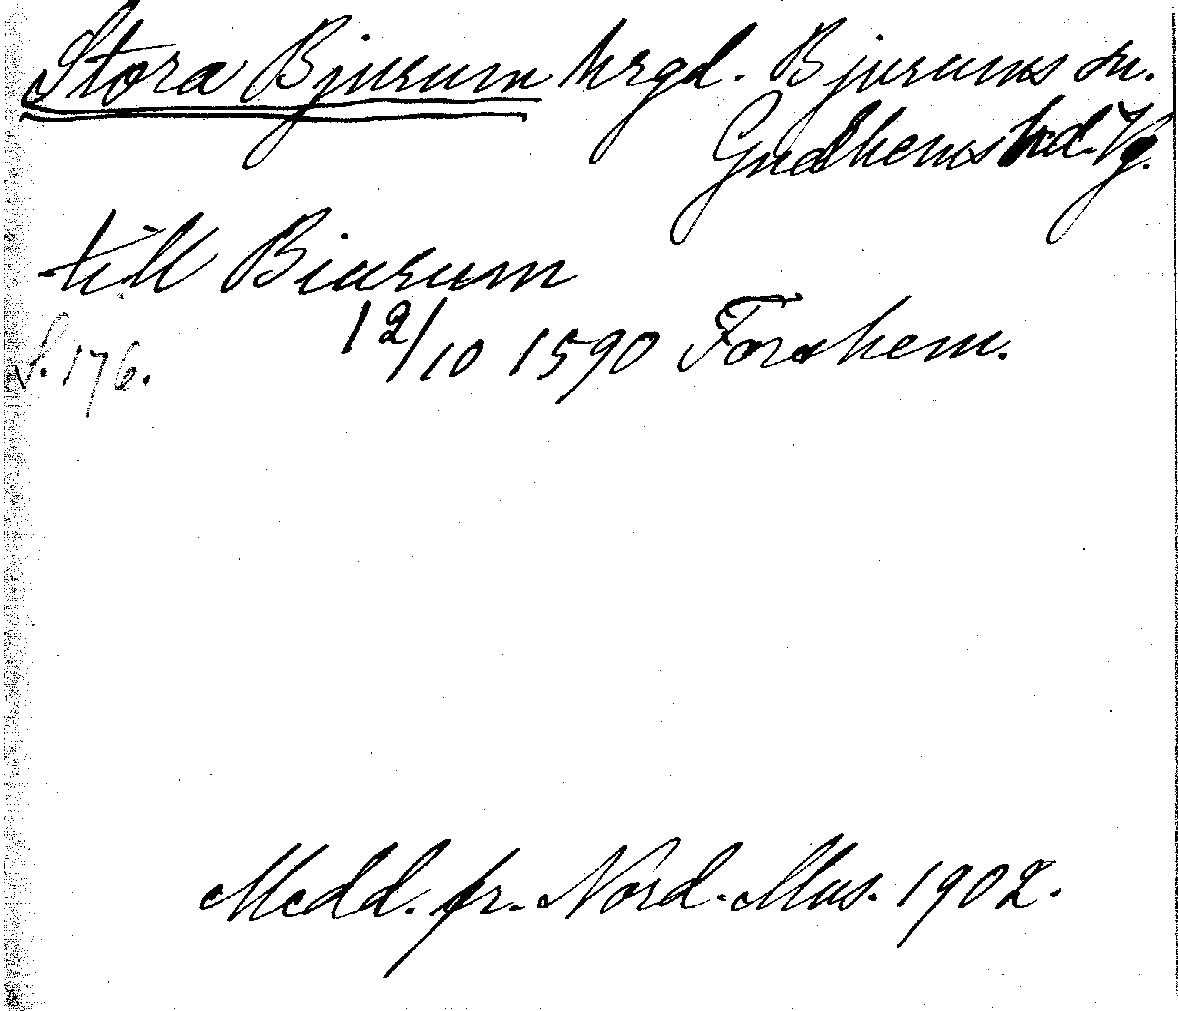 Stora Bjurum hrgd. Bjurums sn.
Gudhems hd. Vg.
till Biurum
S. 176.
12/10 1590 Forshem.
Medd. fr. Nord. Mus. 1902.